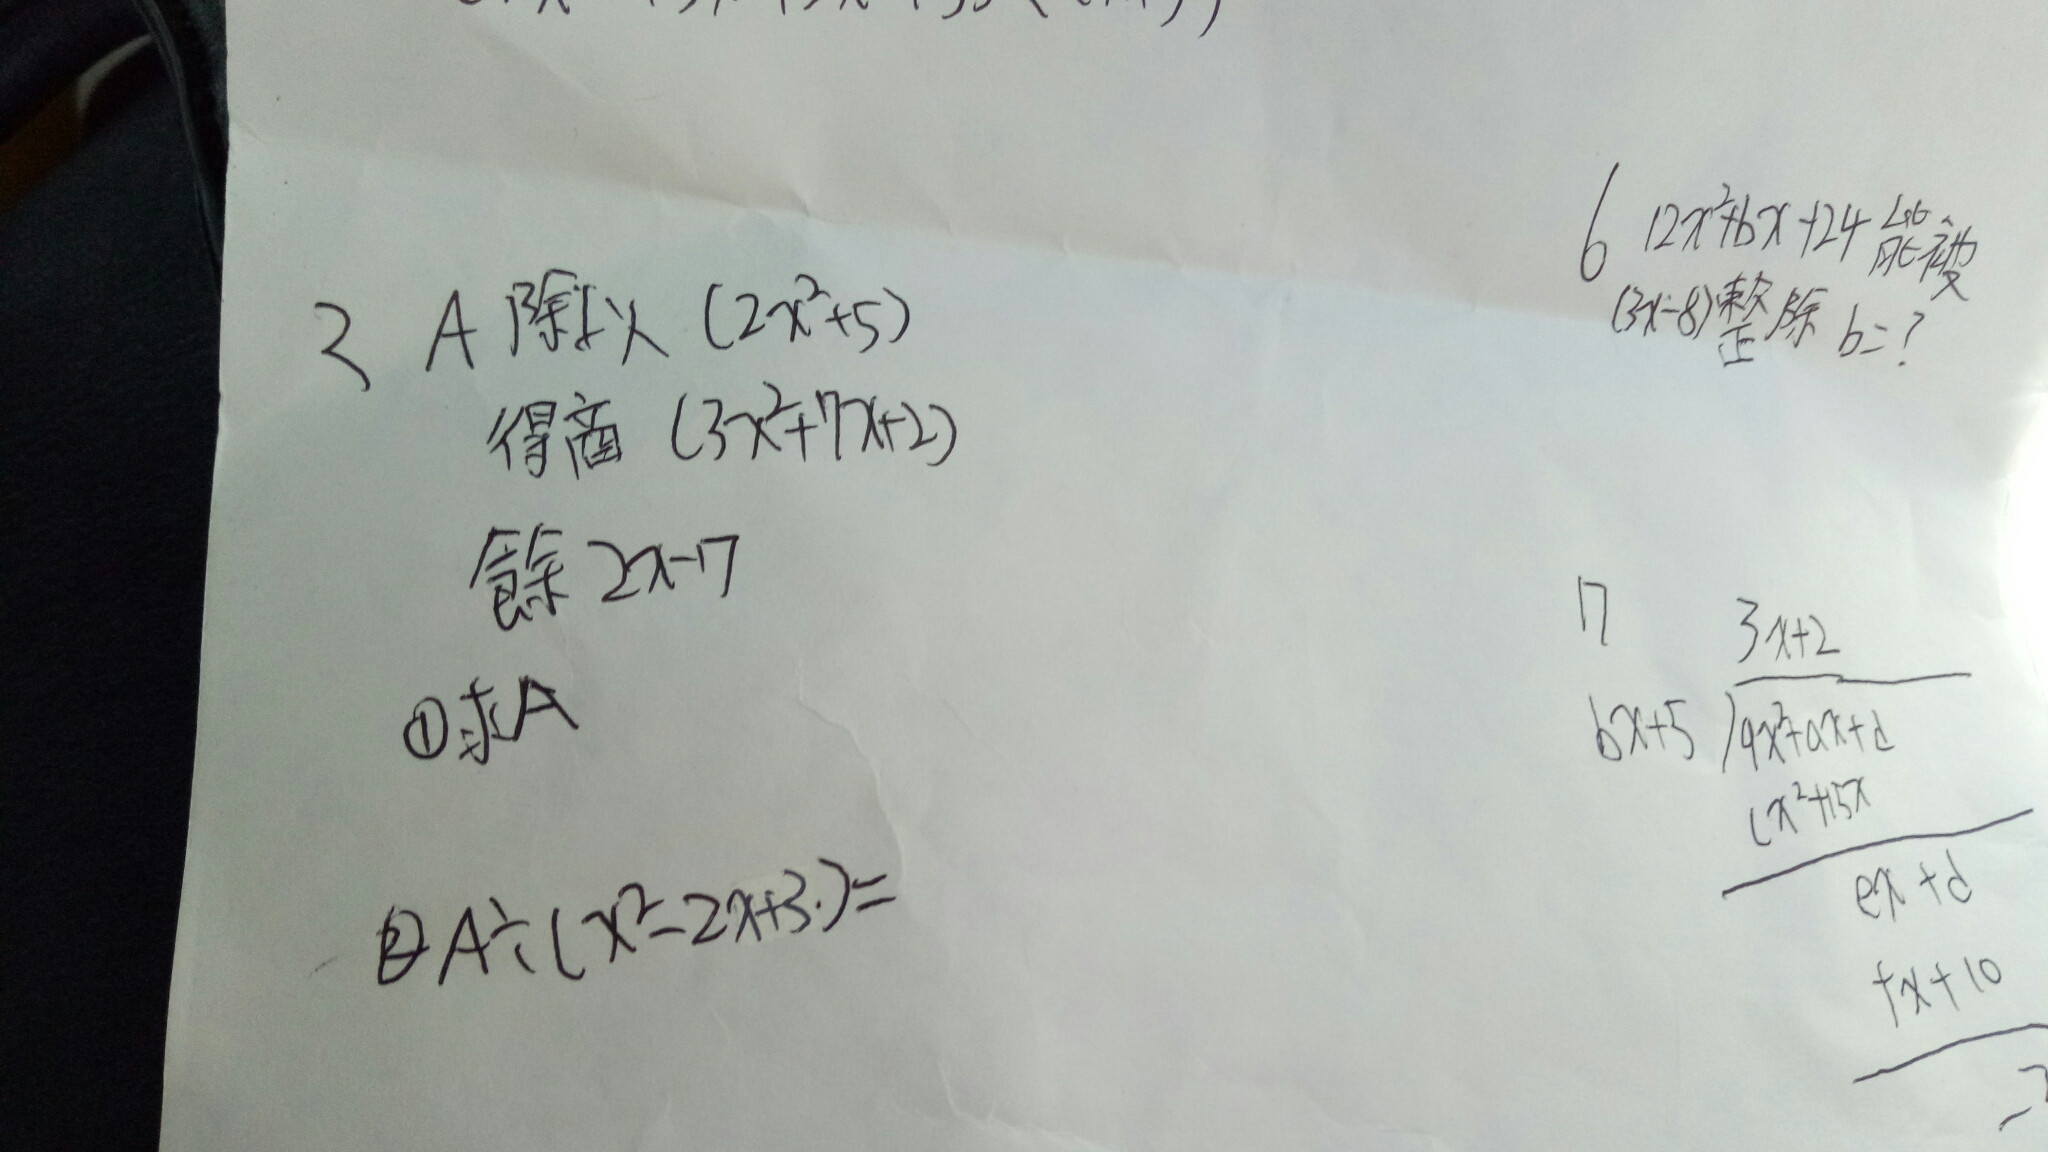 2 A 除以 (2x²+5)
得商 (3x²+7x+2)
餘 2x-7
①求A
②A÷(x²-2x+3)=
6 12x²+bx+24 能被
(3x-8)整除 b=?
7 3x+2
bx+5 )9x²+ax+d
cx²+15x
ex+d
fx+10